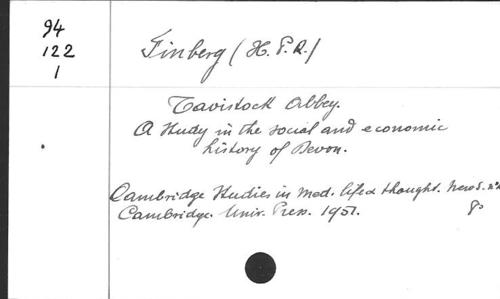 94
122
1
Finberg (H. P. R.)
Tavistock Abbey.
A Study in the social and economic
history of Devon.
Cambridge Studies in Med. life & thought. New S. 2
Cambridge. Univ. Press. 1951. 8o